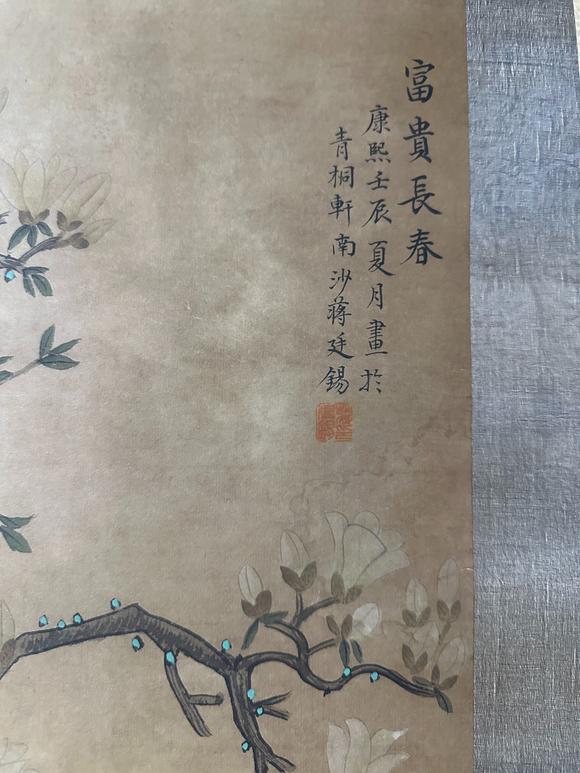 富貴長春
康熙壬辰夏月畫於
青桐軒南沙蔣廷錫